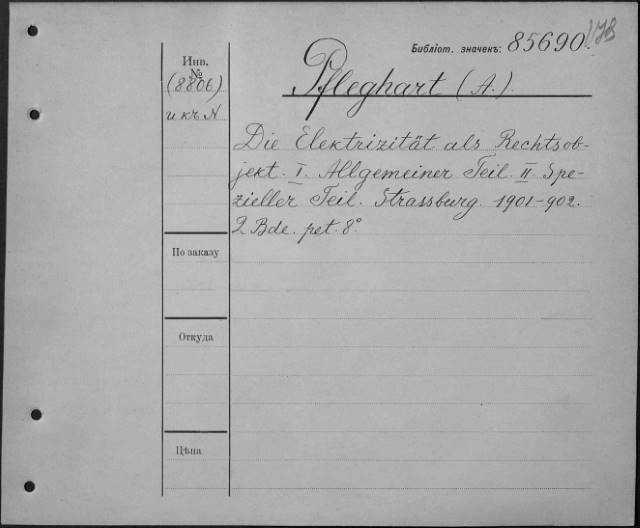 Библіот. значекъ: 85690
Инв.
№
(8806)
и къ N
Pfleghart (A.).
Die Elektrizität als Rechtsob-
jekt. I. Allgemeiner Teil. II. Spe-
zieller Teil. Strassburg. 1901-902.
2 Bde. pet. 8°
По заказу
Откуда
Цѣна